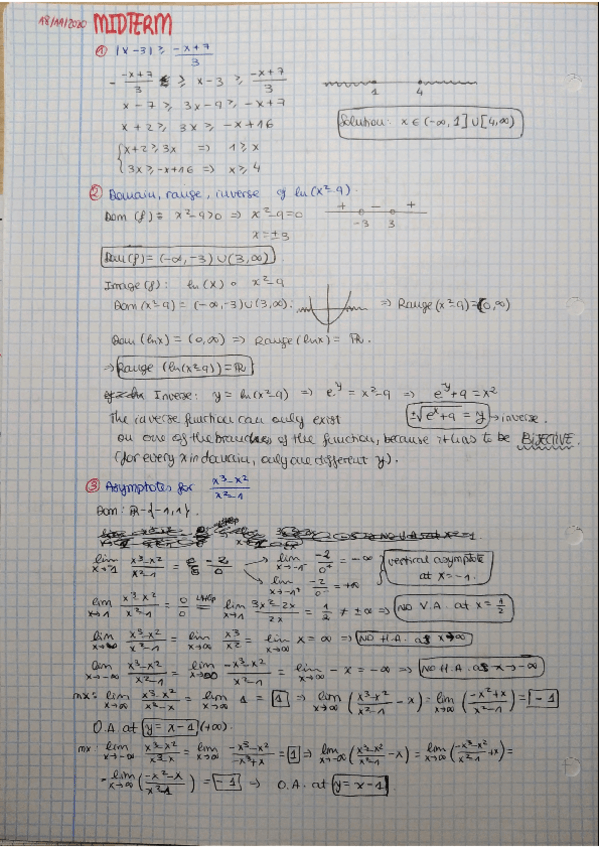 18/11/2020 MIDTERM
① |x-3| ≥ -x+7/3
- -x+7/3 ≥ x-3 ≥ -x+7/3
x-7 ≥ 3x-9 ≥ -x+7
1 4
x+2 ≥ 3x ≥ -x+16
Solution: x ∈ (-∞, 1] ∪ [4, ∞)
{ x+2 ≥ 3x => 1 ≥ x
3x ≥ -x+16 => x ≥ 4
② Domain, range, inverse of ln(x²-9)
Dom (f) = x²-9>0 => x²-9=0
+ - +
-3 3
x = ±3
Dom(f) = (-∞, -3) ∪ (3, ∞)
Image (f): ln(x) ∘ x²-9
Dom (x²-9) = (-∞, -3) ∪ (3, ∞): => Range (x²-9) = (0, ∞)
Dom (lnx) = (0, ∞) => Range (lnx) = ℝ.
=> Range (ln(x²-9)) = ℝ
Inverse: y = ln(x²-9) => e^y = x²-9 => e^y+9 = x²
The inverse function can only exist ±√(e^x+9) = y → inverse.
on one of the branches of the function, because it has to be BIJECTIVE.
(for every x in domain, only one different y).
③ Asymptotes for x³-x²/x²-1
Dom: ℝ-{-1, 1}.
lim x→-1 x³-x²/x²-1 = -2/0 → lim x→-1⁻ -2/0⁺ = -∞
→ lim x→-1⁺ -2/0⁻ = +∞ } vertical asymptote at x=-1.
lim x→1 x³-x²/x²-1 = 0/0 = L'Hôp lim x→1 3x²-2x/2x = 1/2 ≠ ±∞ => NO V.A. at x = 1/2
lim x→∞ x³-x²/x²-1 = lim x→∞ x³/x² = lim x→∞ x = ∞ => NO H.A. as x→∞
lim x→-∞ x³-x²/x²-1 = lim x→∞ -x³-x²/x²-1 = lim x→∞ -x = -∞ => NO H.A. as x→-∞
mx = lim x→∞ x³-x²/x³-x = lim x→∞ 1 = 1 => lim x→∞ (x³-x²/x²-1 - x) = lim x→∞ (-x²+x/x²-1) = -1
O.A. at y = x-1 (+∞).
mx: lim x→-∞ x³-x²/x³-x = lim x→∞ -x³-x²/-x³+x = 1 => lim x→-∞ (x³-x²/x²-1 - x) = lim x→∞ (-x³-x²/x²-1 + x) =
= lim x→∞ (-x²-x/x²-1) = -1 => O.A. at y = x-1